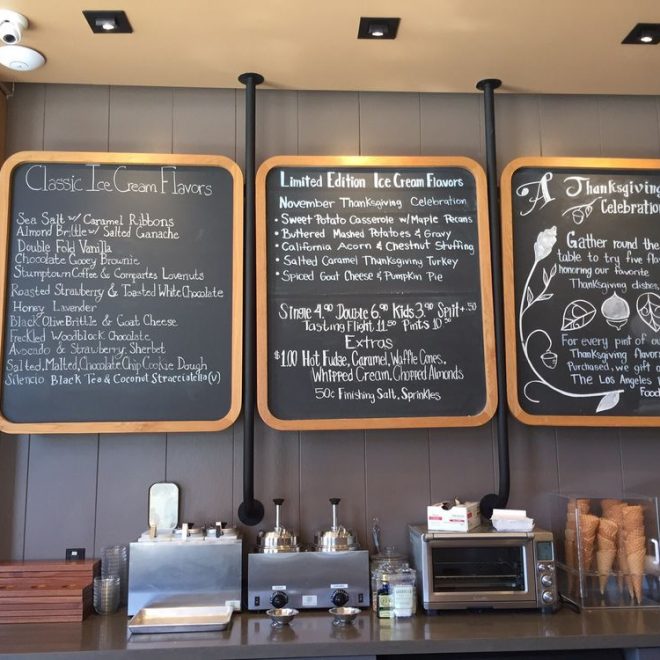 Classic Ice Cream Flavors
Sea Salt w/ Caramel Ribbons
Almond Brittle w/ Salted Ganache
Double Fold Vanilla
Chocolate Gooey Brownie
Stumptown Coffee & Compartes Lovenuts
Roasted Strawberry & Toasted White Chocolate
Honey Lavender
Black Olive Brittle & Goat Cheese
Freckled Woodblock Chocolate
Avocado & Strawberry Sherbet
Salted, Malted, Chocolate Chip Cookie Dough
Silencio Black Tea & Coconut Stracciatella (v)
Limited Edition Ice Cream Flavors
November Thanksgiving Celebration
• Sweet Potato Casserole w/ Maple Pecans
• Buttered Mashed Potatoes & Gravy
• California Acorn & Chestnut Stuffing
• Salted Caramel Thanksgiving Turkey
• Spiced Goat Cheese & Pumpkin Pie
Single 4.90 Double 6.90 Kids 3.90 Split +.50
Tasting Flight 11.50 Pints 10.50
Extras
$1.00 Hot Fudge, Caramel, Waffle Cones,
Whipped Cream, Chopped Almonds
50¢ Finishing Salt, Sprinkles
A Thanksgiving
Celebration
Gather round the
table to try five fla
honoring our favorite
Thanksgiving dishes.
For every pint of our
Thanksgiving flavors
Purchased, we gift a
The Los Angeles
Food